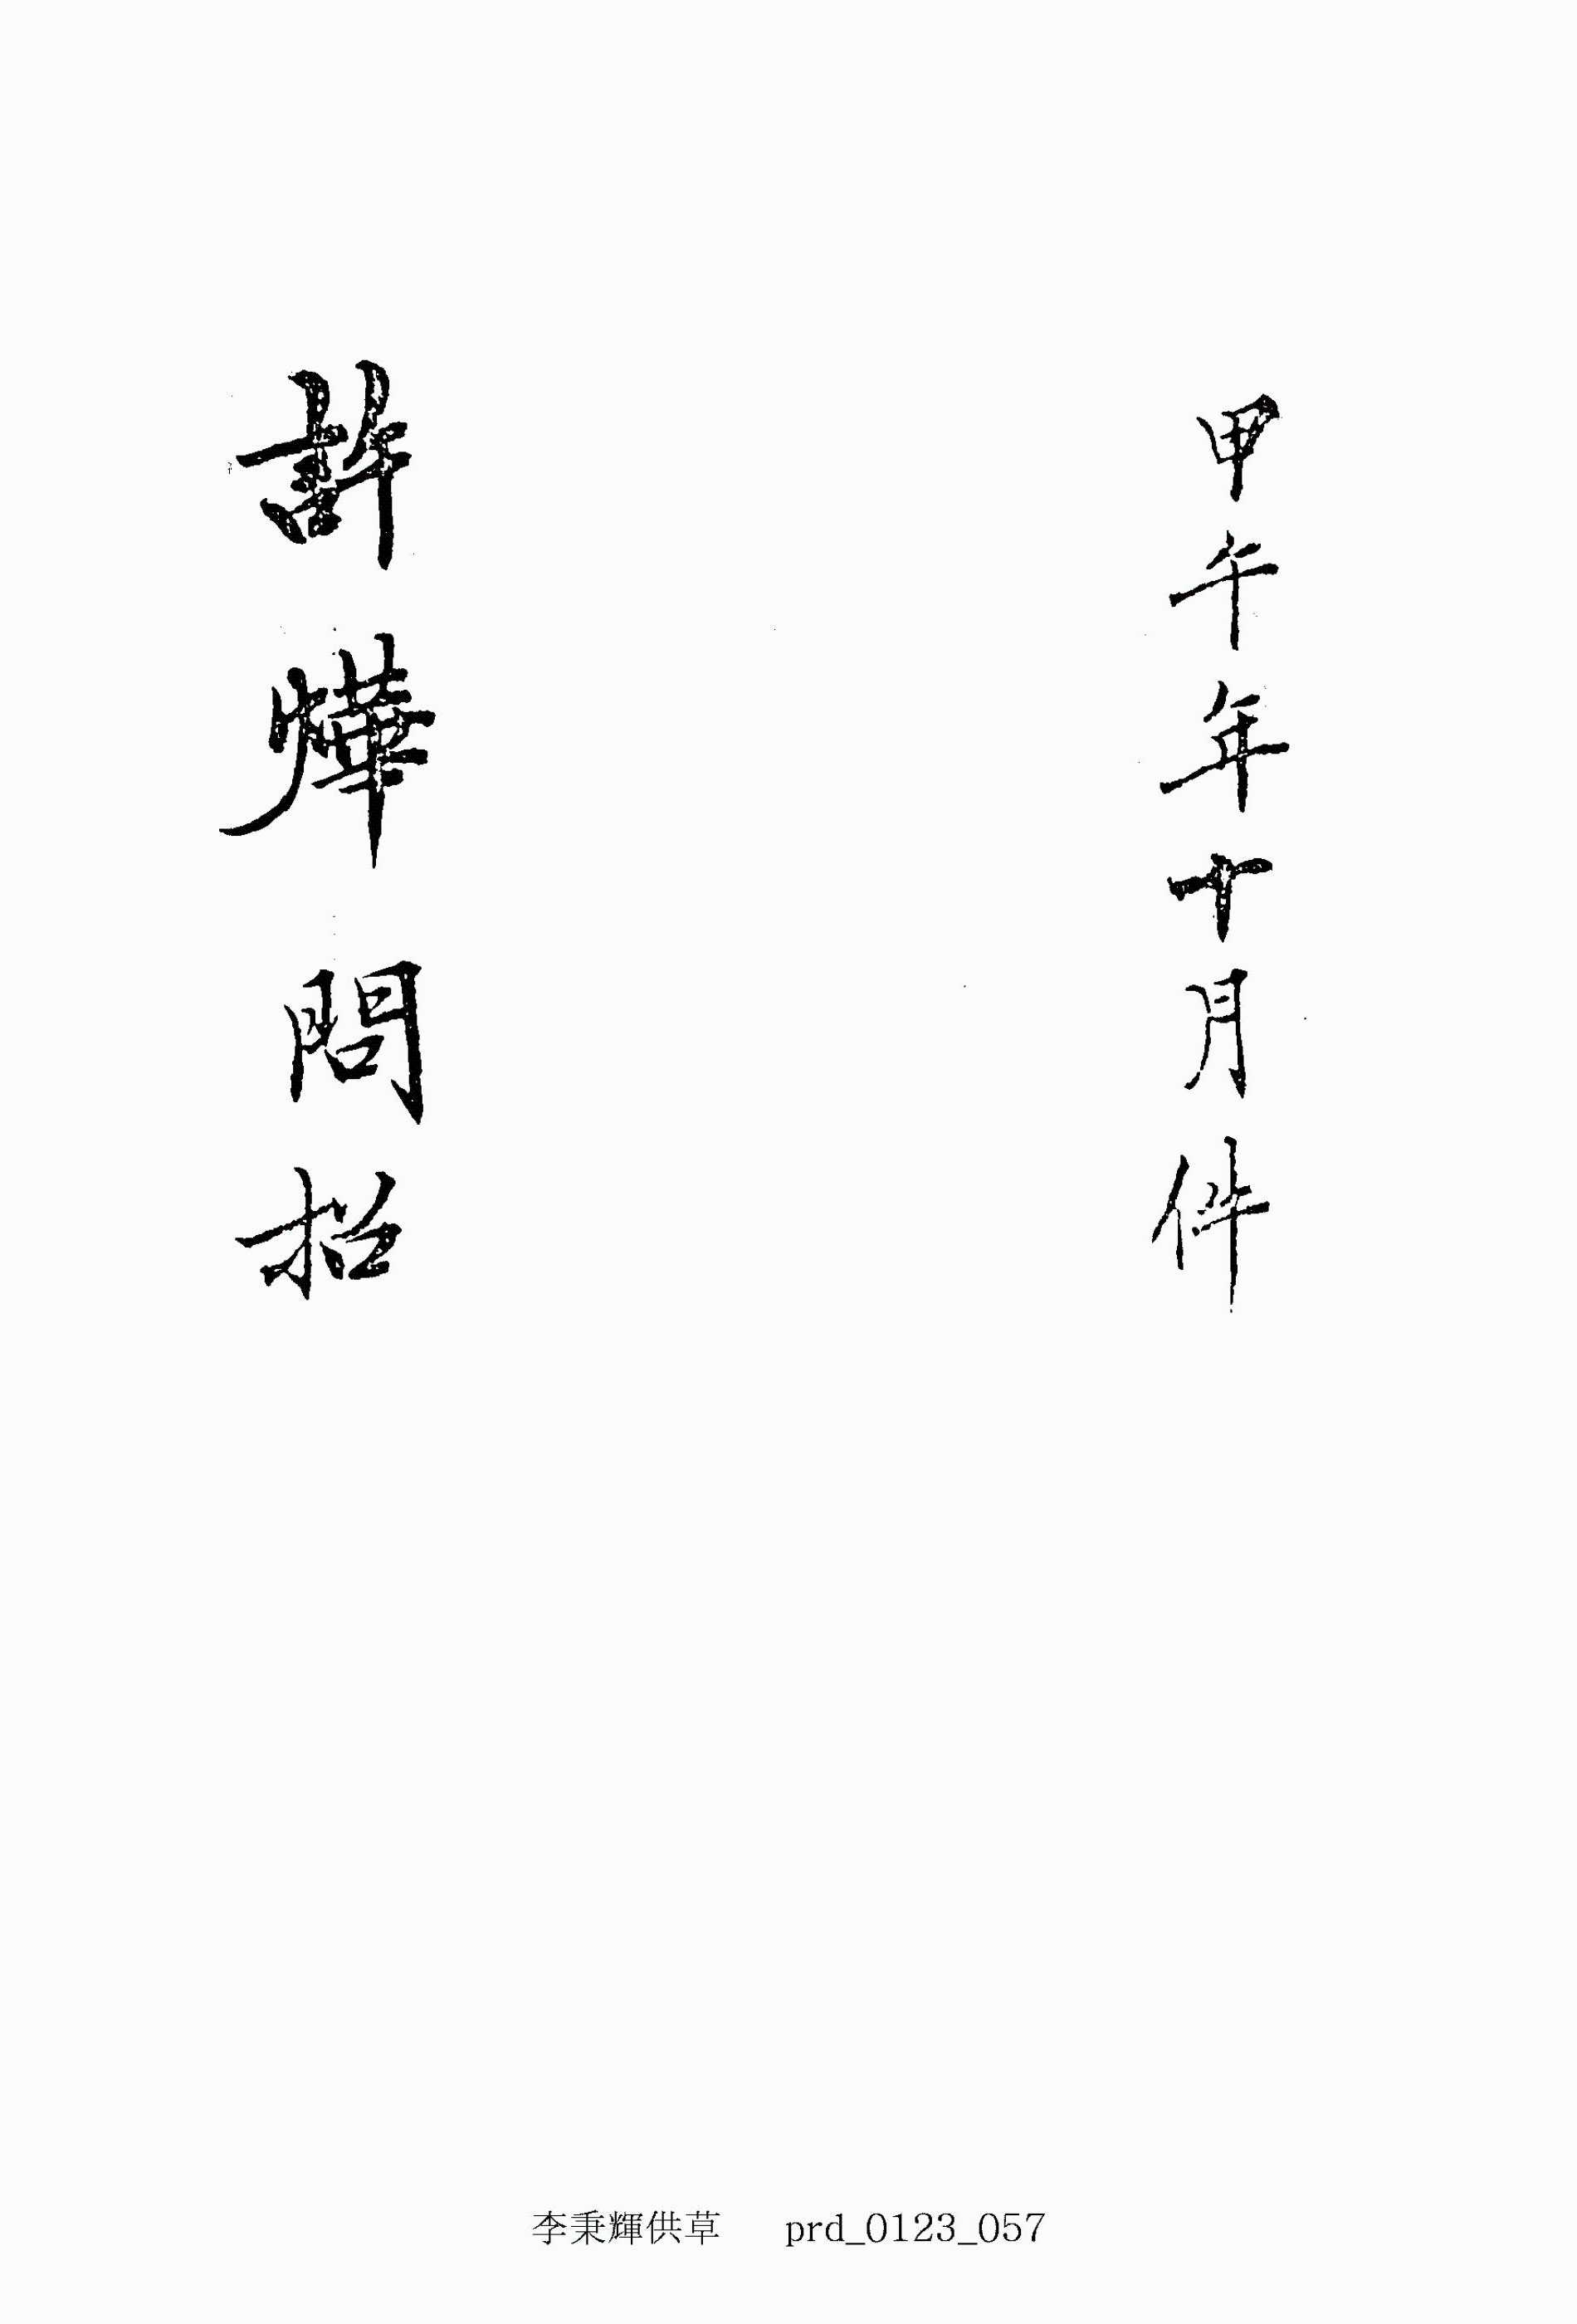 甲午年十月件
許燁問招
李秉輝供草 prd_0123_057